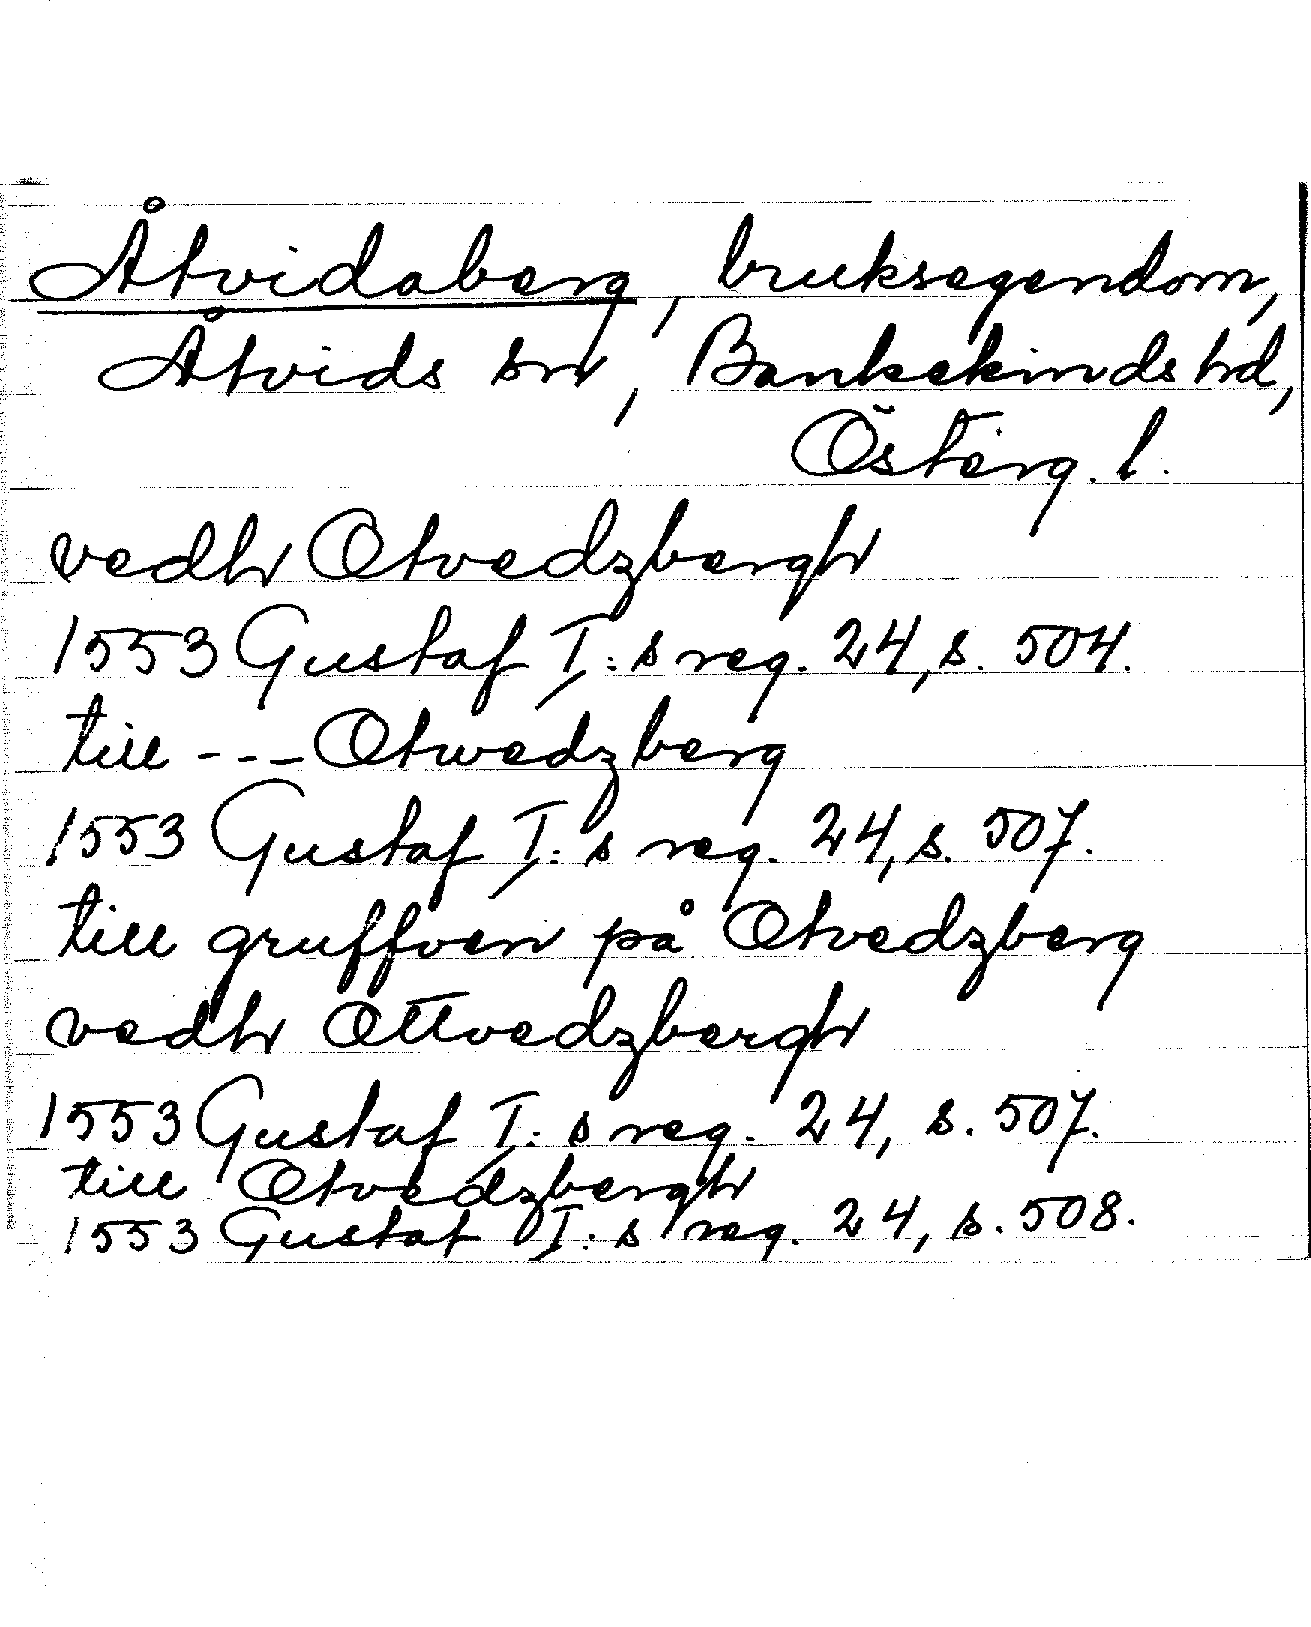 Åtvidaberg, bruksegendom,
Åtvids sn, Bankekinds hd,
Österg. l.
vedh Otvedzbergh
1553 Gustaf I:s reg. 24, s. 504.
till --- Otwedzberg
1553 Gustaf I:s reg. 24, s. 507.
till gruffven på Otvedzberg
vedh Ottvedzbergh
1553 Gustaf I:s reg. 24, s. 507.
till Otvedzbergh
1553 Gustaf I:s reg. 24, s. 508.